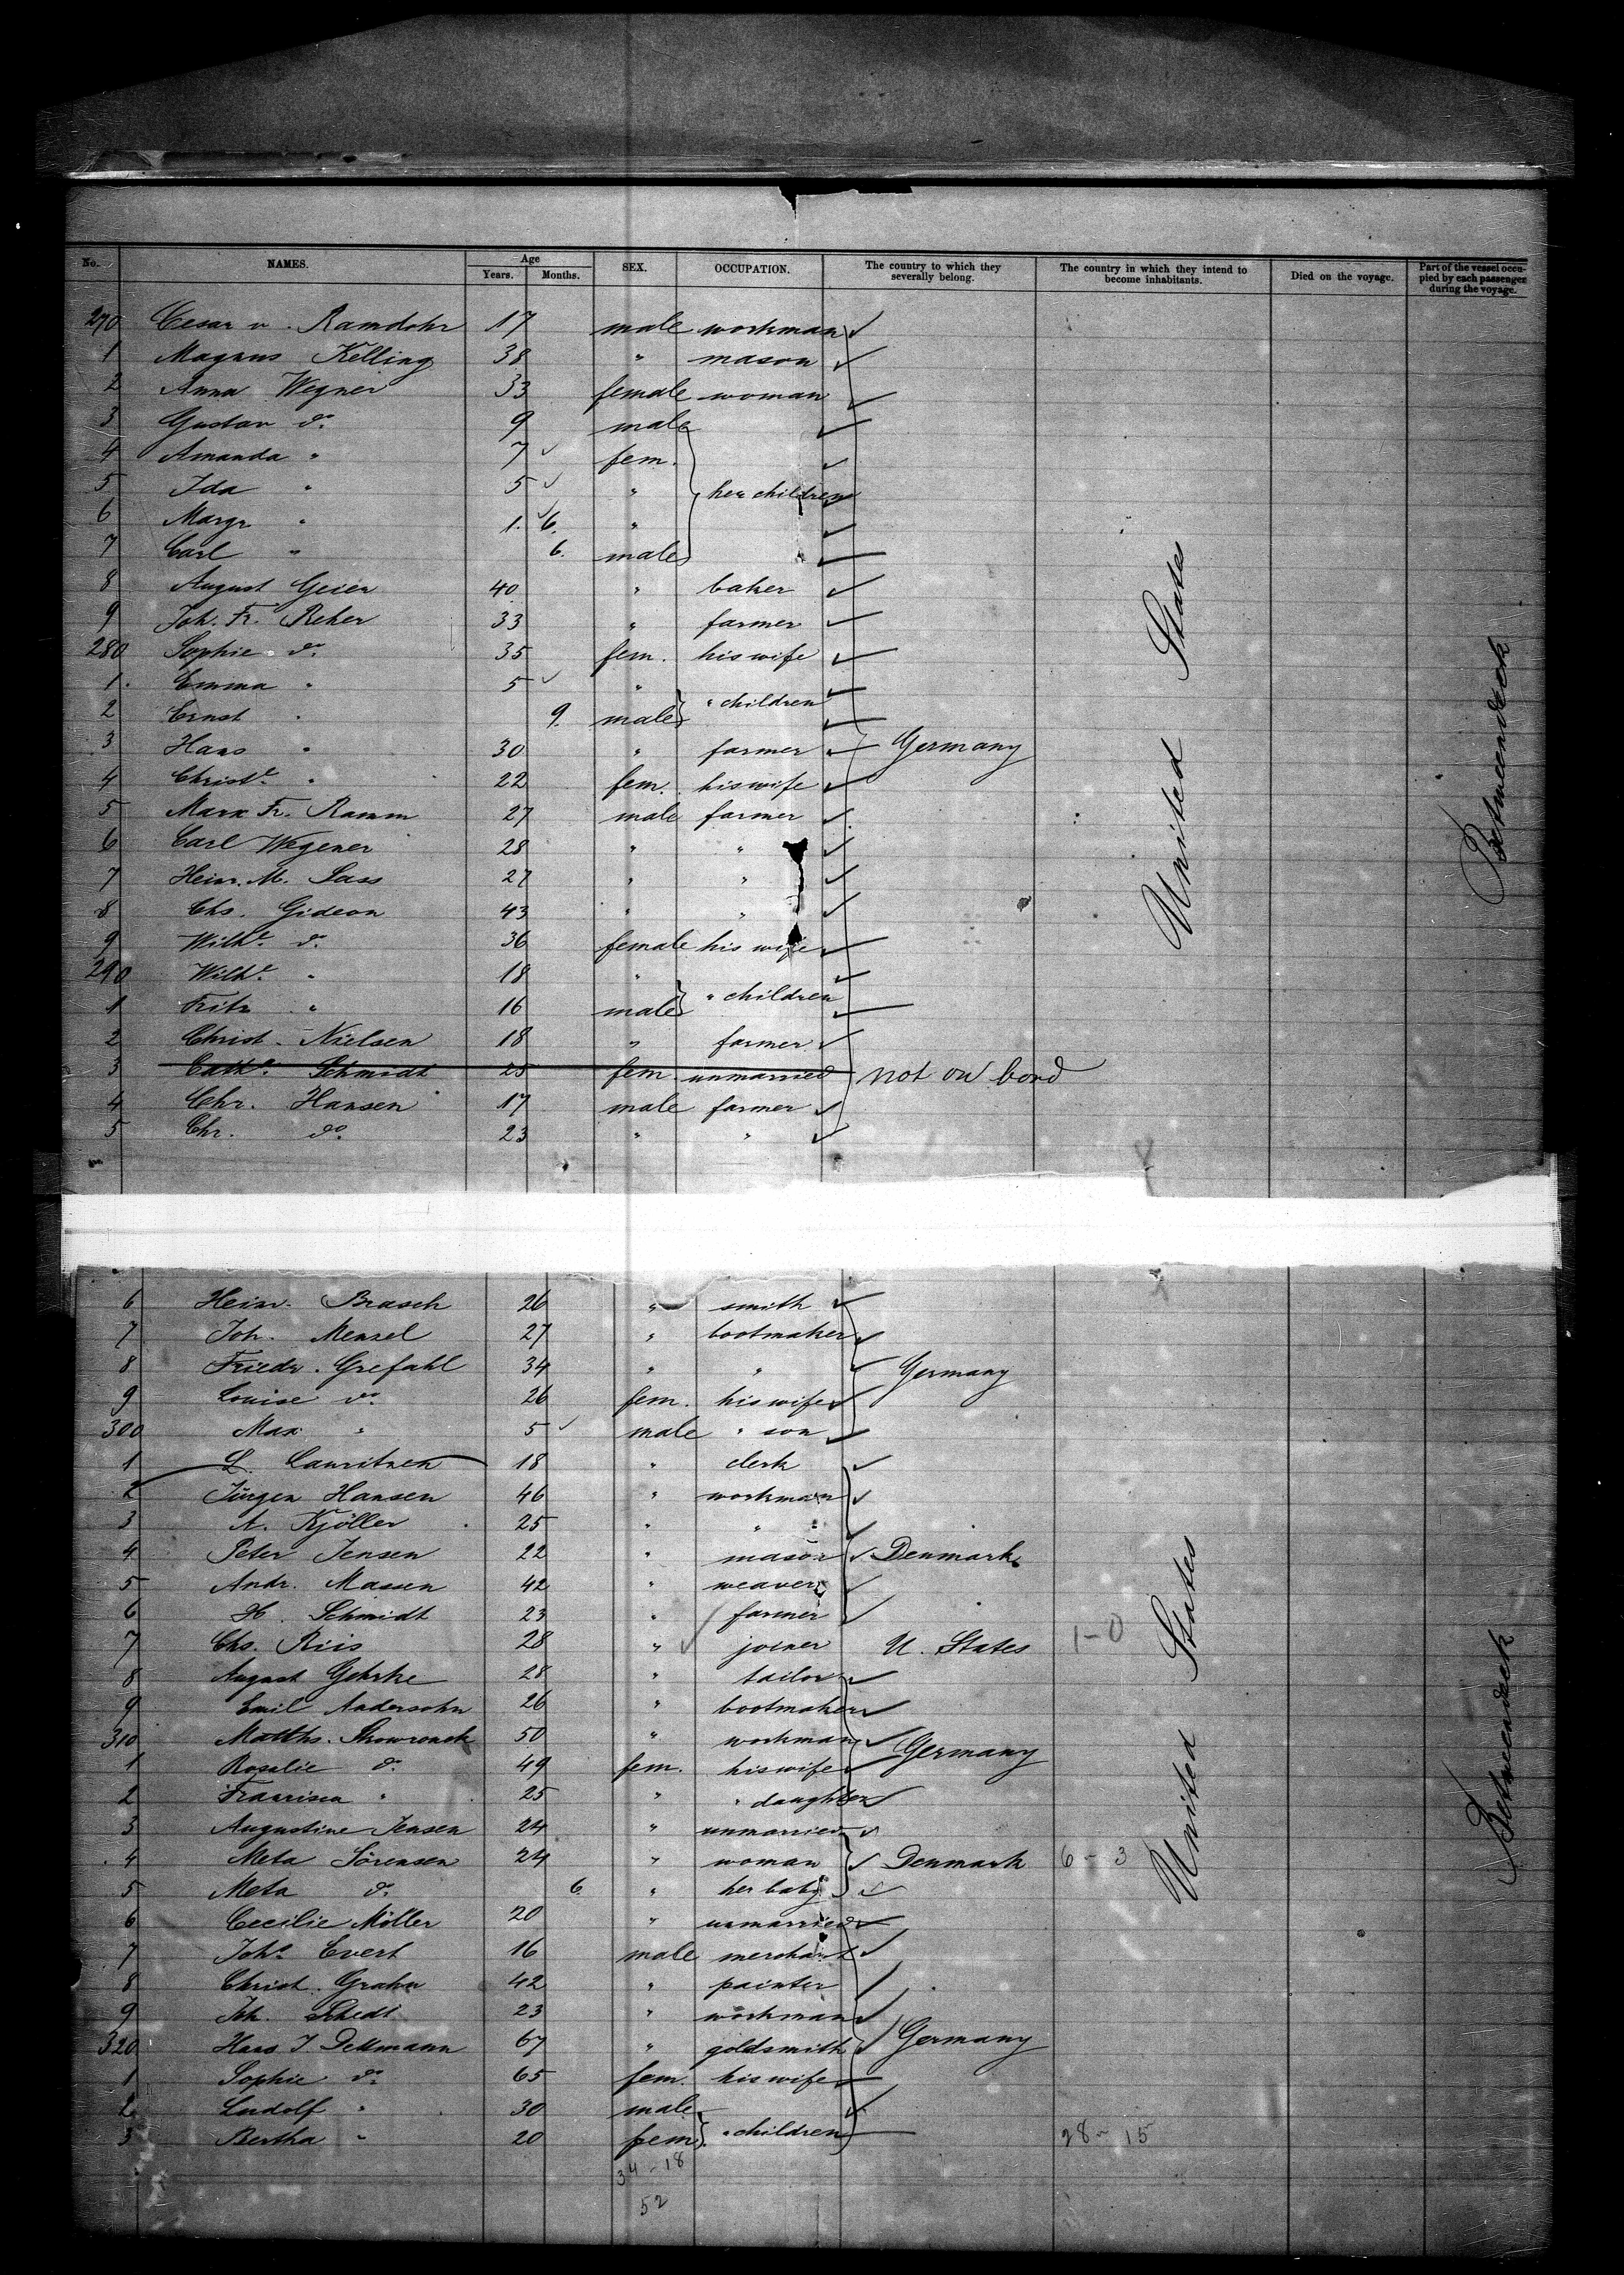 No. NAMES. Age Years. Months. SEX. OCCUPATION. The country to which they severally belong. The country in which they intend to become inhabitants. Died on the voyage. Part of the vessel occupied by each passenger during the voyage.
270 Cesar v. Ramdohr 17 male workman
1 Magnus Kelling 38 " mason
2 Anna Wegner 33 female woman
3 Gustav do. 9 male
4 Amanda " 7 fem.
5 Ida " 5 " her children
6 Margr " 1. 6. "
7 Carl " 6. male
8 August Geier 40 " baker
9 Joh. Fr. Reher 33 " farmer
280 Sophie do. 35 fem. his wife
1 Emma " 5 "
" children
2 Ernst " 9. male
3 Hans " 30 " farmer Germany
4 Christe. " 22 fem. his wife
5 Marx Fr. Ramm 27 male farmer
6 Carl Wegener 28 " "
7 Heinr. M. Sass 27 " "
8 Chs. Gideon 43 " "
9 Wilhe. do. 36 female his wife
290 Wilhe. " 18 "
" children
1 Fritz " 16 male
2 Christ. Nielsen 18 " farmer
3 Cathe. Schmidt 25 fem unmarried not on bord
4 Chr. Hansen 17 male farmer
5 Chr. do. 23 " "
United States
Betweendeck
6 Heinr. Brasch 26 " smith
7 Joh. Mensel 27 " bootmaker
8 Friedr. Grefahl 34 " " Germany
9 Louise do. 26 fem. his wife
300 Max " 5 male " son
1 L. Lauritzen 18 " clerk
2 Jürgen Hansen 46 " workman
3 A. Kjöller 25 " "
4 Peter Jensen 22 " mason Denmark
5 Andr. Massen 42 " weaver
6 H. Schmidt 23 " farmer
7 Chs. Riis 28 " joiner U. States 1-0
8 August Gehrke 28 " tailor
9 Emil Andersohn 26 " bootmaker
310 Matths. Skowronek 50 " workman Germany
1 Rosalie do. 49 fem. his wife
2 Francisca " 25 " " daughter
3 Augustine Jensen 24 " unmarried
4 Meta Sörensen 24 " woman Denmark 6-3
5 Meta do. 6 " her baby
6 Cecilie Möller 20 " unmarried
7 Johs. Evert 16 male merchant
8 Christ. Grahn 42 " painter
9 Joh. 23 " workman
320 Hans J. Dettmann 67 " goldsmith Germany
1 Sophie do. 65 fem. his wife
2 Ludolf " 30 male
" children
3 Bertha " 20 fem 28-15
34-18
52
United States
Betweendeck